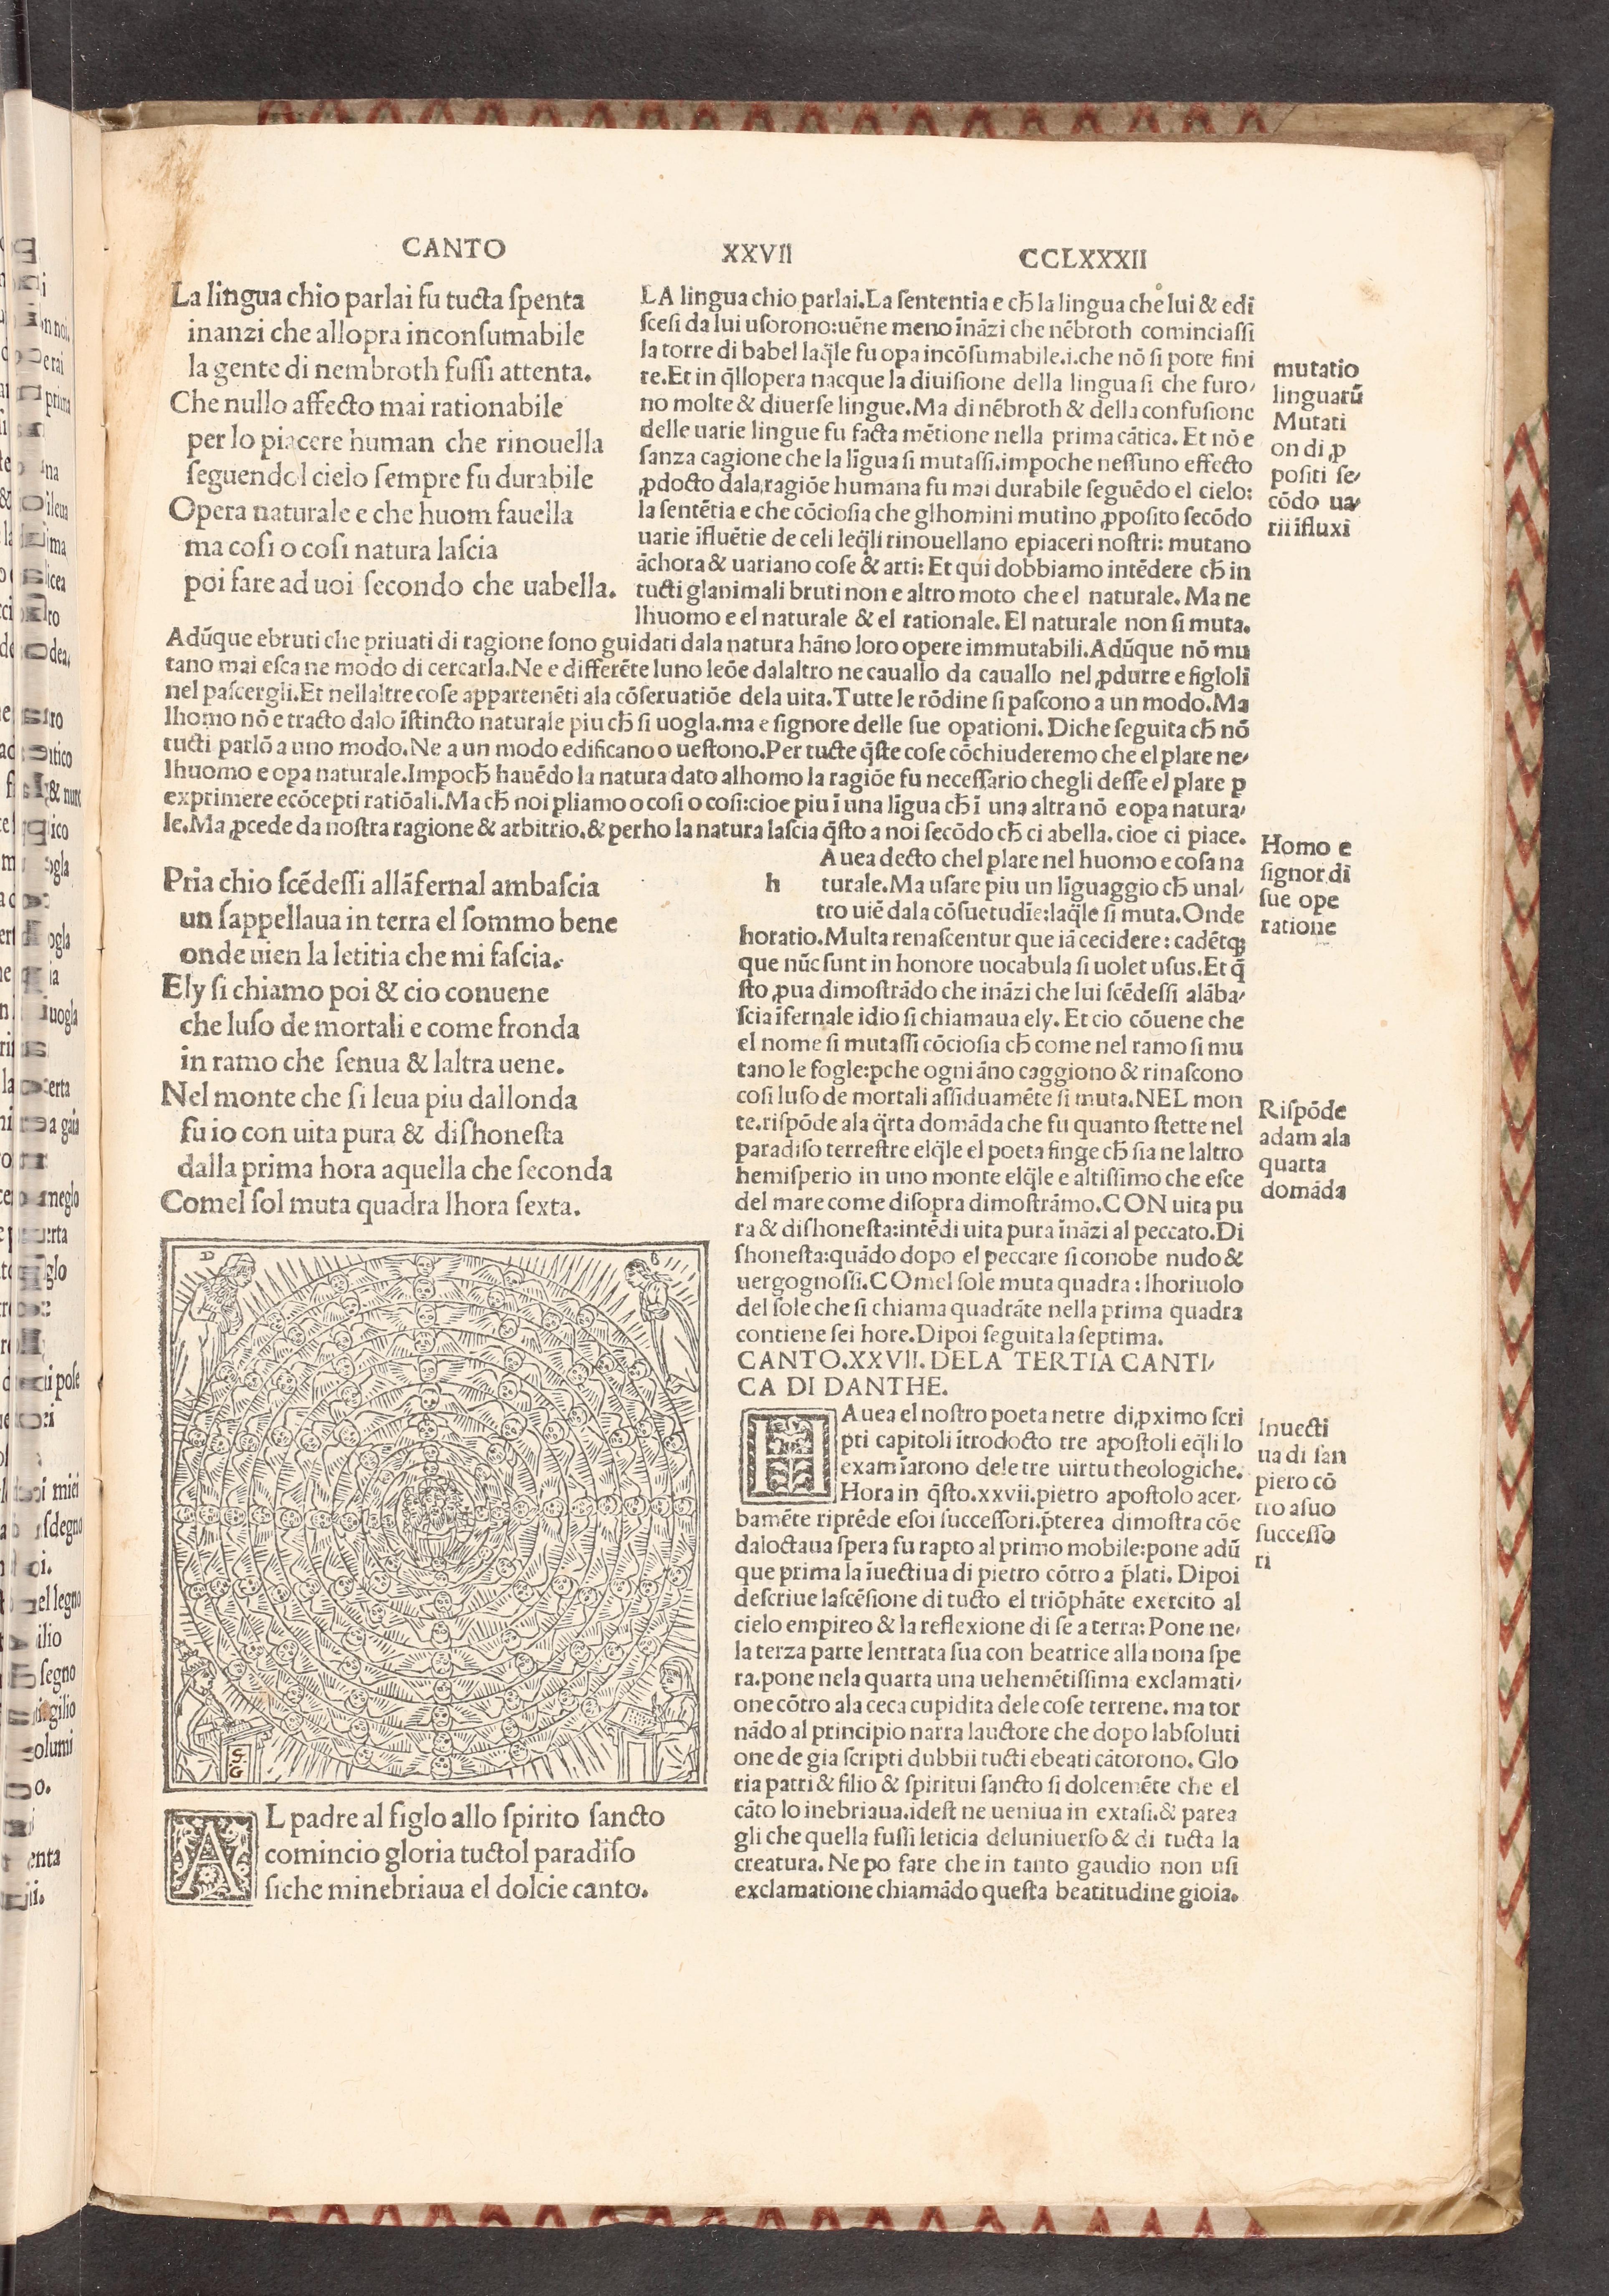 CANTO XXVII CCLXXXII
La lingua chio parlai fu tucta ſpenta
inanzi che allopra inconſumabile
la gente di nembroth fuſſi attenta.
Che nullo affecto mai rationabile
per lo piacere human che rinouella
ſeguendol cielo ſempre fu durabile
Opera naturale e che huom fauella
ma coſi o coſi natura laſcia
poi fare ad uoi ſecondo che uabella.
LA lingua chio parlai. La ſententia e ch̄ la lingua che lui & edi
ſceſi da lui uſorono: uēne meno īnāzi che nēbroth cominciaſſi
la torre di babel laq̄le fu opa incōſumabile.i.che nō ſi pote fini
re. Et in q̄llopera nacque la diuiſione della lingua ſi che furo/
no molte & diuerſe lingue. Ma di nēbroth & della confuſione
delle uarie lingue fu facta mētione nella prima cātica. Et nō e
ſanza cagione che la līgua ſi mutaſſi. impoche neſſuno effecto
ꝓdocto dala ragiōe humana fu mai durabile ſeguēdo el cielo:
la ſentētia e che cōcioſia che glhomini mutino ꝓpoſito ſecōdo
uarie īfluētie de celi leq̄li rinouellano epiaceri noſtri: mutano
āchora & uariano coſe & arti: Et qui dobbiamo intēdere ch̄ in
tucti glanimali bruti non e altro moto che el naturale. Ma ne
lhuomo e el naturale & el rationale. El naturale non ſi muta.
mutatio
linguarū
Mutati
on di ꝓ
poſiti ſe/
cōdo ua/
rii īfluxi
Adūque ebruti che priuati di ragione ſono guidati dala natura hāno loro opere immutabili. Adūque nō mu
tano mai eſca ne modo di cercarla. Ne e differēte luno leōe dalaltro ne cauallo da cauallo nel ꝓdurre e figloli
nel paſcergli. Et nellaltre coſe appartenēti ala cōſeruatiōe dela uita. Tutte le rōdine ſi paſcono a un modo. Ma
lhomo nō e tracto dalo īſtincto naturale piu ch̄ ſi uogla. ma e ſignore delle ſue opationi. Diche ſeguita ch̄ nō
tucti parlō a uno modo. Ne a un modo edificano o ueſtono. Per tucte q̄ſte coſe cōchiuderemo che el plare ne/
lhuomo e opa naturale. Impoch̄ hauēdo la natura dato alhomo la ragiōe fu neceſſario chegli deſſe el plare p
exprimere ecōcepti ratiōali. Ma ch̄ noi pliamo o coſi o coſi: cioe piu ī una līgua ch̄ ī una altra nō e opa natura/
le. Ma ꝓcede da noſtra ragione & arbitrio. & perho la natura laſcia q̄ſto a noi ſecōdo ch̄ ci abella. cioe ci piace.
Pria chio ſcēdeſſi allāfernal ambaſcia
un ſappellaua in terra el ſommo bene
onde uien la letitia che mi faſcia.
Ely ſi chiamo poi & cio conuene
che luſo de mortali e come fronda
in ramo che ſenua & laltra uene.
Nel monte che ſi leua piu dallonda
fu io con uita pura & diſhoneſta
dalla prima hora aquella che ſeconda
Comel ſol muta quadra lhora ſexta.
h
Auea decto chel plare nel huomo e coſa na
turale. Ma uſare piu un līguaggio ch̄ unal/
tro uiē dala cōſuetudīe: laq̄le ſi muta. Onde
horatio. Multa renaſcentur que iā cecidere: cadētꝗ
que nūc ſunt in honore uocabula ſi uolet uſus. Et q̄
ſto ꝓua dimoſtrādo che ināzi che lui ſcēdeſſi alāba/
ſcia īfernale idio ſi chiamaua ely. Et cio cōuene che
el nome ſi mutaſſi cōcioſia ch̄ come nel ramo ſi mu
tano le fogle: pche ogni āno caggiono & rinaſcono
coſi luſo de mortali aſſiduamēte ſi muta. NEL mon
te. riſpōde ala q̄rta domāda che fu quanto ſtette nel
paradiſo terreſtre elq̄le el poeta finge ch̄ ſia ne laltro
hemiſperio in uno monte elq̄le e altiſſimo che eſce
del mare come diſopra dimoſtrāmo. CON uita pu
ra & diſhoneſta: intēdi uita pura īnāzi al peccato. Di
ſhoneſta: quādo dopo el peccare ſi conobe nudo &
uergognoſſi. COmel ſole muta quadra: lhoriuolo
del ſole che ſi chiama quadrāte nella prima quadra
contiene ſei hore. Dipoi ſeguita la ſeptima.
Homo e
ſignor di
ſue ope
ratione
Riſpōde
adam ala
quarta
domāda
CANTO.XXVII. DELA TERTIA CANTI/
CA DI DANTHE.
HAuea el noſtro poeta netre di ꝓximo ſcri
pti capitoli ītrodocto tre apoſtoli eq̄li lo
examīarono dele tre uirtu theologiche.
Hora in q̄ſto.xxvii. pietro apoſtolo acer/
bamēte riprēde eſoi ſucceſſori. p̄terea dimoſtra cōe
daloctaua ſpera fu rapto al primo mobile: pone adū
que prima la īuectiua di pietro cōtro a p̄lati. Dipoi
deſcriue laſcēſione di tucto el triōphāte exercito al
cielo empireo & la reflexione di ſe a terra: Pone ne/
la terza parte lentrata ſua con beatrice alla nona ſpe
ra. pone nela quarta una uehemētiſſima exclamati/
one cōtro ala ceca cupidita dele coſe terrene. ma tor
nādo al principio narra lauctore che dopo labſoluti
one de gia ſcripti dubbii tucti ebeati cātorono. Glo
ria patri & filio & ſpiritui ſancto ſi dolcemēte che el
cāto lo inebriaua. ideſt ne ueniua in extaſi. & parea
gli che quella fuſſi leticia deluniuerſo & di tucta la
creatura. Ne po fare che in tanto gaudio non uſi
exclamatione chiamādo queſta beatitudine gioia.
Inuecti
ua di ſan
piero cō
tro aſuo
ſucceſſo
ri
D B
S
G
AL padre al figlo allo ſpirito ſancto
comincio gloria tuctol paradiſo
ſiche minebriaua el dolcie canto.